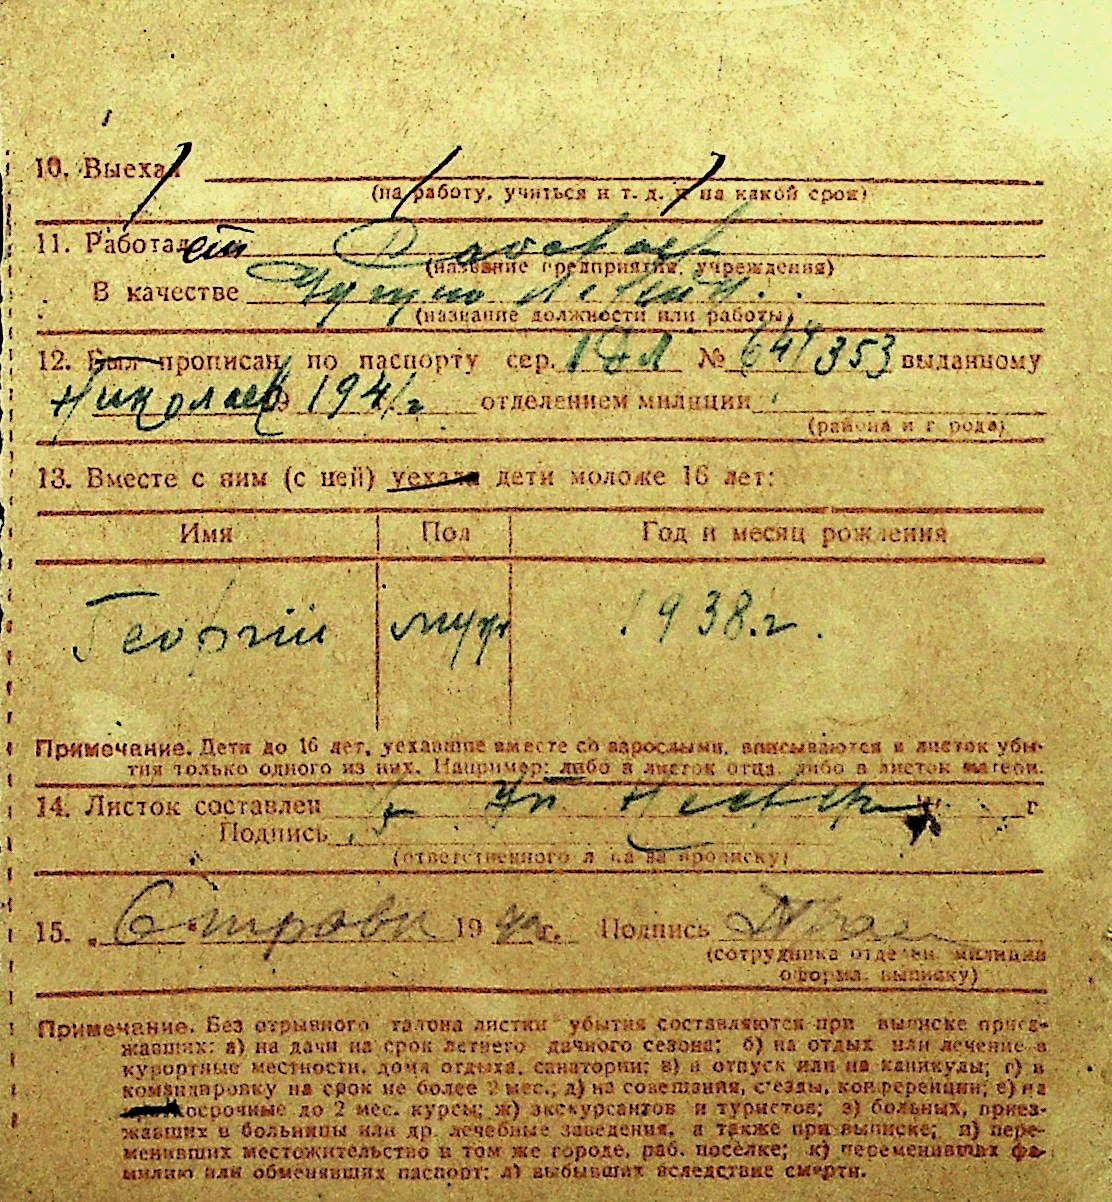 10. Выехал
(на работу, учиться и т. д. и на какой срок)
11. Работал
(название предприятия, учреждения)
В качестве
(название должности или работы)
12. Был прописан по паспорту сер. № 353 выданному
Николаев 19 1941 г. отделением милиции
(района и города)
13. Вместе с ним (с ней) уехала дети моложе 16 лет:
Имя Пол Год и месяц рождения
Георгий муж 1938.г.
Примечание. Дети до 16 лет, уехавшие вместе со взрослыми, вписываются в листок убы-
тия только одного из них. Например: либо в листок отца, либо в листок матери.
14. Листок составлен г
Подпись
(ответственного лица за прописку)
15. 19 г. Подпись
(сотрудника отделен. милиции
оформл. выписку)
Примечание. Без отрывного талона листки убытия составляются при выписке приез-
жавших: а) на дачи на срок летнего дачного сезона; б) на отдых или лечение в
курортные местности, дома отдыха, санатории; в) в отпуск или на каникулы; г) в
командировку на срок не более 2 мес.; д) на совещания, съезды, конференции; е) на
косрочные до 2 мес. курсы; ж) экскурсантов и туристов; з) больных, приез-
жавших в больницы или др. лечебные заведения, а также при выписке; и) пере-
менивших местожительство в том же городе, раб. посёлке; к) переменивших фа-
милию или обменявших паспорт; л) выбывших вследствие смерти.